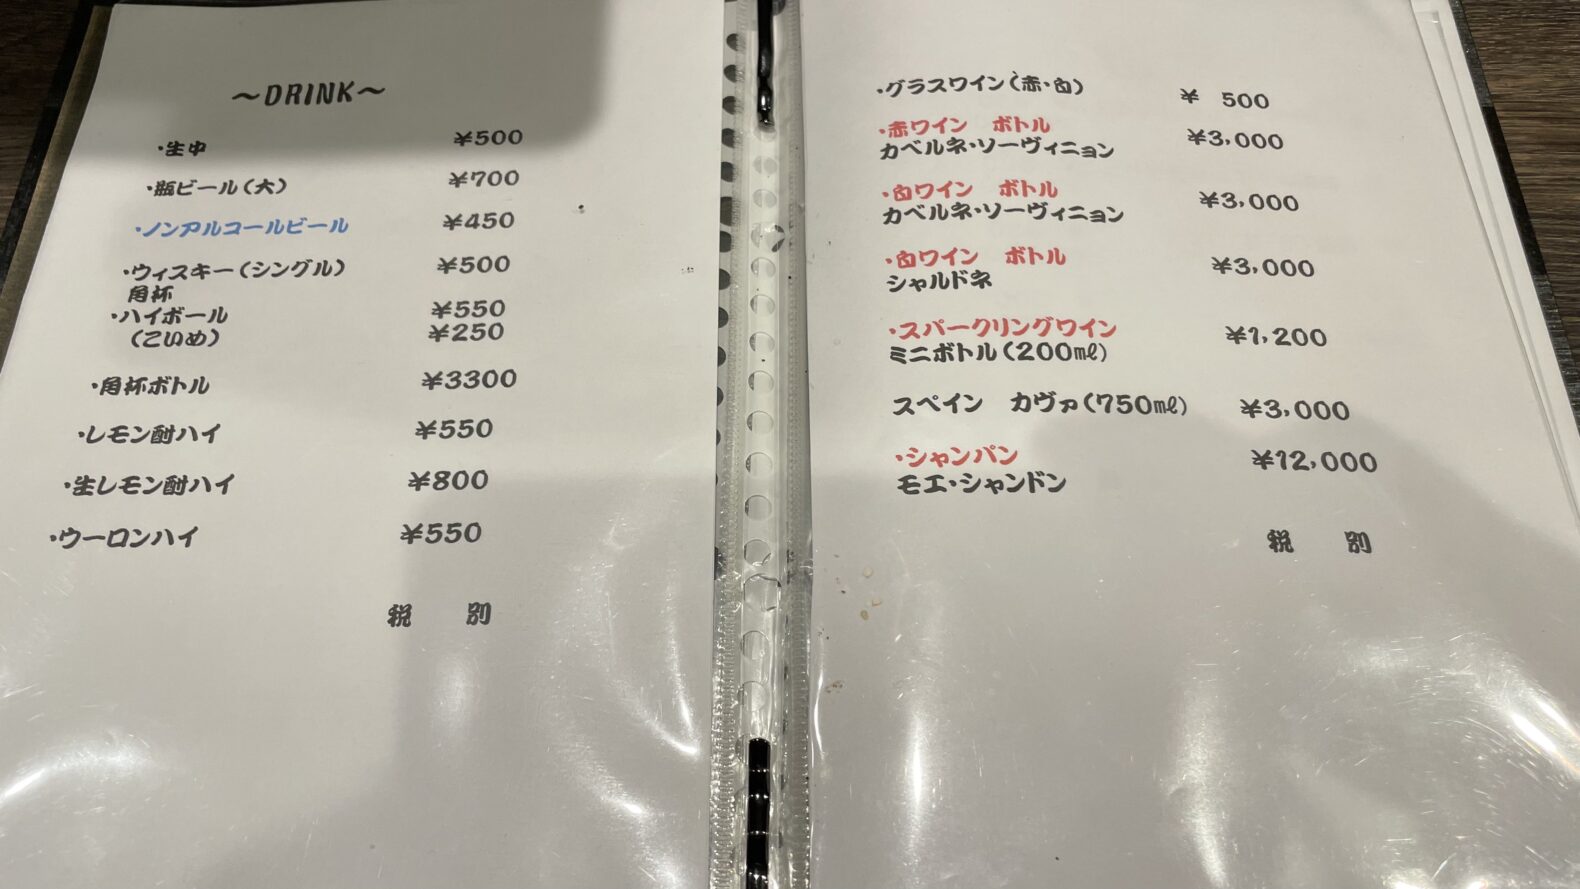 ～DRINK～
・生中 ¥500
・瓶ビール(大) ¥700
・ノンアルコールビール ¥450
・ウィスキー(シングル) ¥500
角杯
・ハイボール ¥550
(こいめ) ¥250
・角杯ボトル ¥3300
・レモン酎ハイ ¥550
・生レモン酎ハイ ¥800
・ウーロンハイ ¥550
税 別
・グラスワイン(赤・白) ¥ 500
・赤ワイン ボトル ¥3,000
カベルネ・ソーヴィニョン
・白ワイン ボトル ¥3,000
カベルネ・ソーヴィニョン
・白ワイン ボトル ¥3,000
シャルドネ
・スパークリングワイン ¥1,200
ミニボトル(200㎖)
スペイン カヴァ(750㎖) ¥3,000
・シャンパン ¥12,000
モエ・シャンドン
税 別